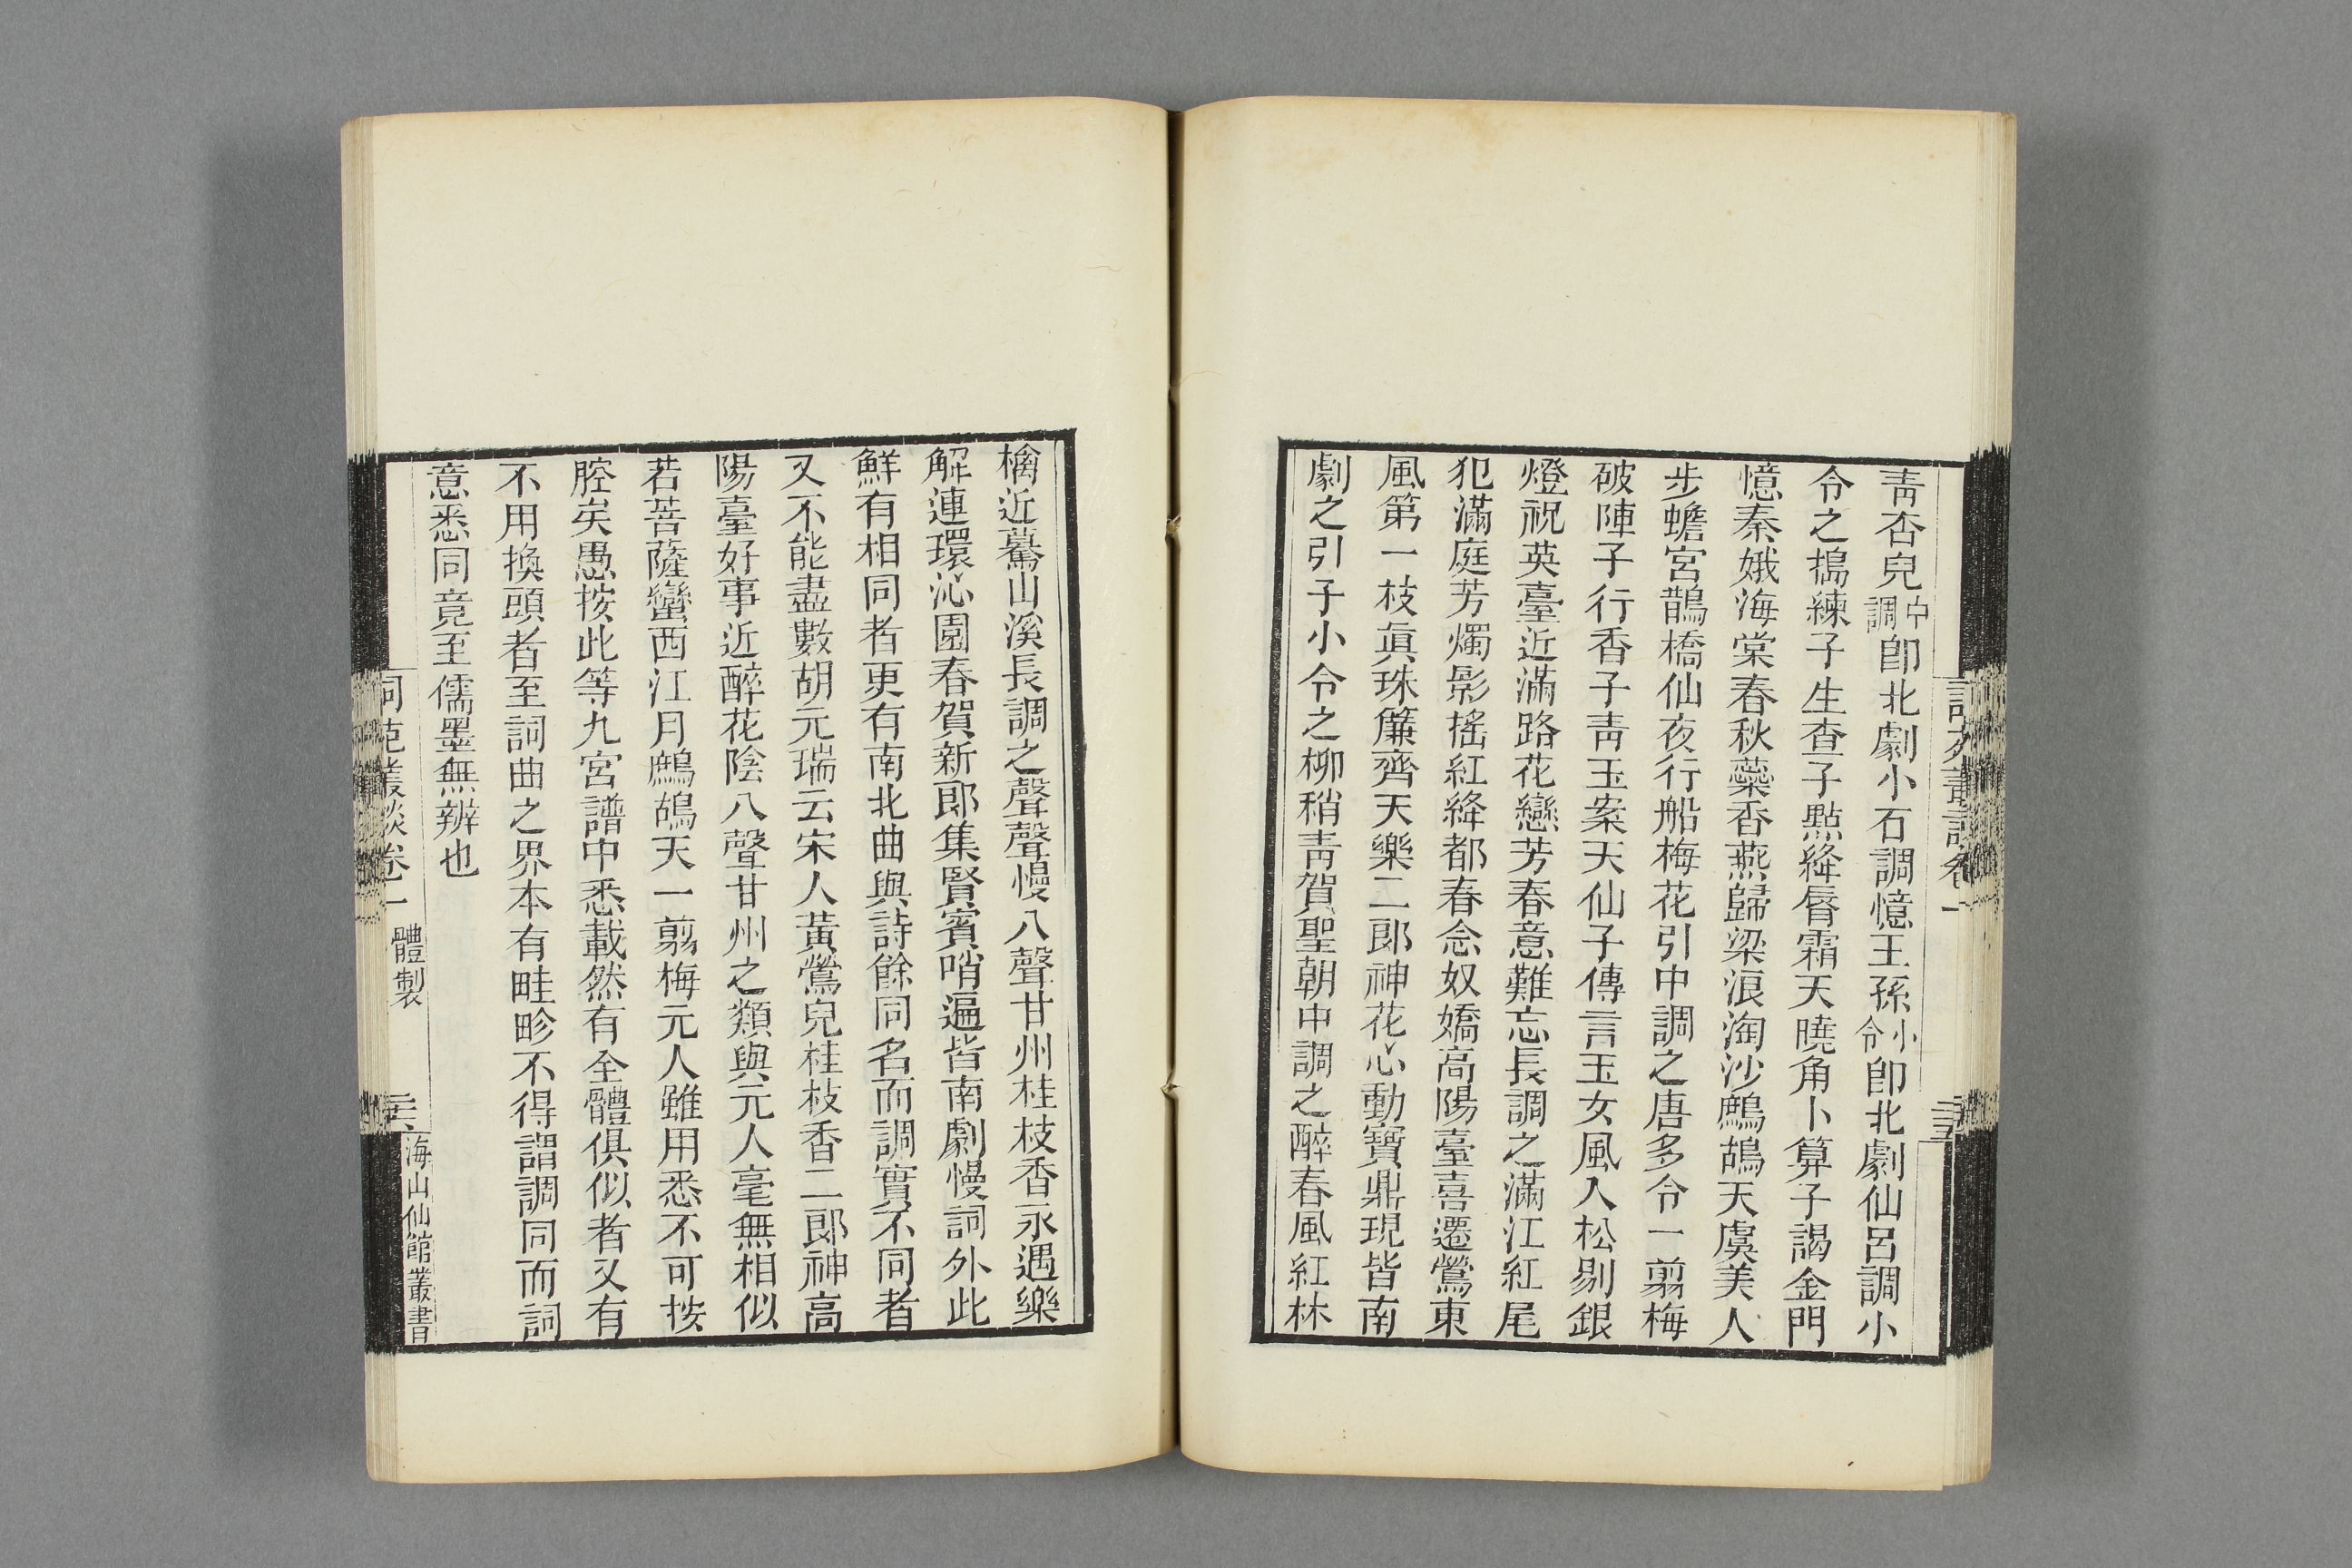 青杏兒中調卽北劇小石調憶王孫小令卽北劇仙呂調小
令之搗練子生查子點絳脣霜天曉角卜算子謁金門
憶秦娥海棠春秋蘂香燕歸梁浪淘沙鷓鴣天虞美人
步蟾宮鵲橋仙夜行船梅花引中調之唐多令一翦梅
破陣子行香子青玉案天仙子傳言玉女風入松剔銀
燈祝英臺近滿路花戀芳春意難忘長調之滿江紅尾
犯滿庭芳燭影搖紅絳都春念奴嬌高陽臺喜遷鶯東
風第一枝眞珠簾齊天樂二郎神花心動寶鼎現皆南
劇之引子小令之柳稍青賀聖朝中調之醉春風紅林
檎近驀山溪長調之聲聲慢八聲甘州桂枝香永遇樂
解連環沁園春賀新郎集賢賓哨遍皆南劇慢詞外此
鮮有相同者更有南北曲與詩餘同名而調實不同者
又不能盡數胡元瑞云宋人黃鶯兒桂枝香二郎神高
陽臺好事近醉花陰八聲甘州之類與元人毫無相似
若菩薩蠻西江月鷓鴣天一翦梅元人雖用悉不可按
腔矣愚按此等九宮譜中悉載然有全體俱似者又有
不用換頭者至詞曲之界本有畦畛不得謂調同而詞
意悉同竟至儒墨無辨也
詞苑叢談卷一
體製
海山仙館叢書